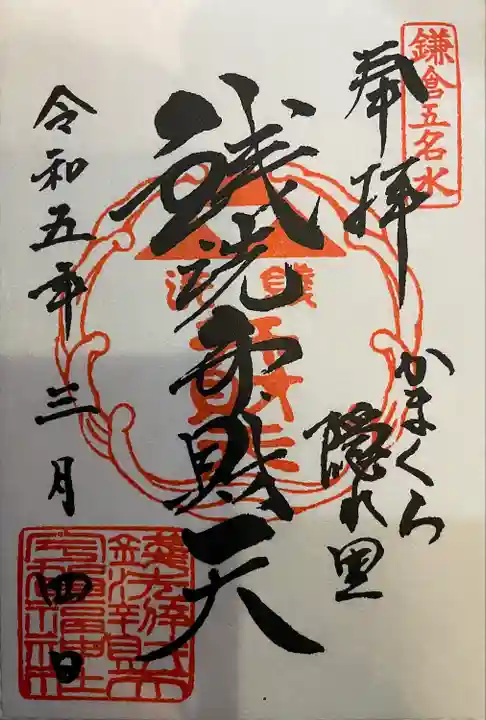 鎌倉五名水
奉拝
かまくら
隠れ里
銭洗弁財天
銭洗
令和五年三月四日